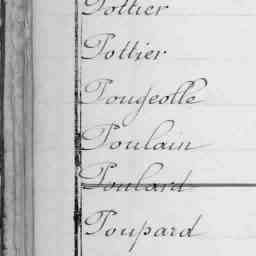 Pottier
Pottier
Pougeolle
Poulain
Poulard
Poupard